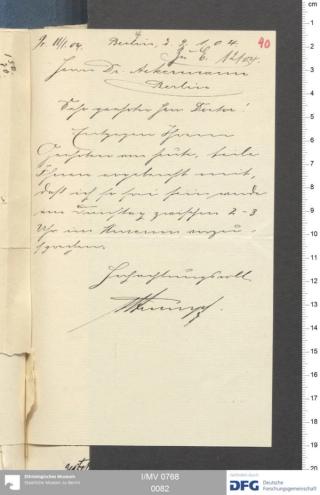 Pr. 11/1.04.
Berlin, 2.9.1.04.
40
Zu E. 12/04.
Herrn Dr. Ankermann
Berlin
Sehr geehrter Herr Doctor!
Entgegen Ihrem
Schreiben von heute, teile
Ihnen ergebenst mit,
daß ich so frei sein werde
am Dienstag zwischen 2-3
Uhr im Museum vorzu-
sprechen.
Hochachtungsvoll
cm
Ethnologisches Museum
Staatliche Museen zu Berlin
I/MV 0768
0082
DFG
Deutsche
Forschungsgemeinschaft